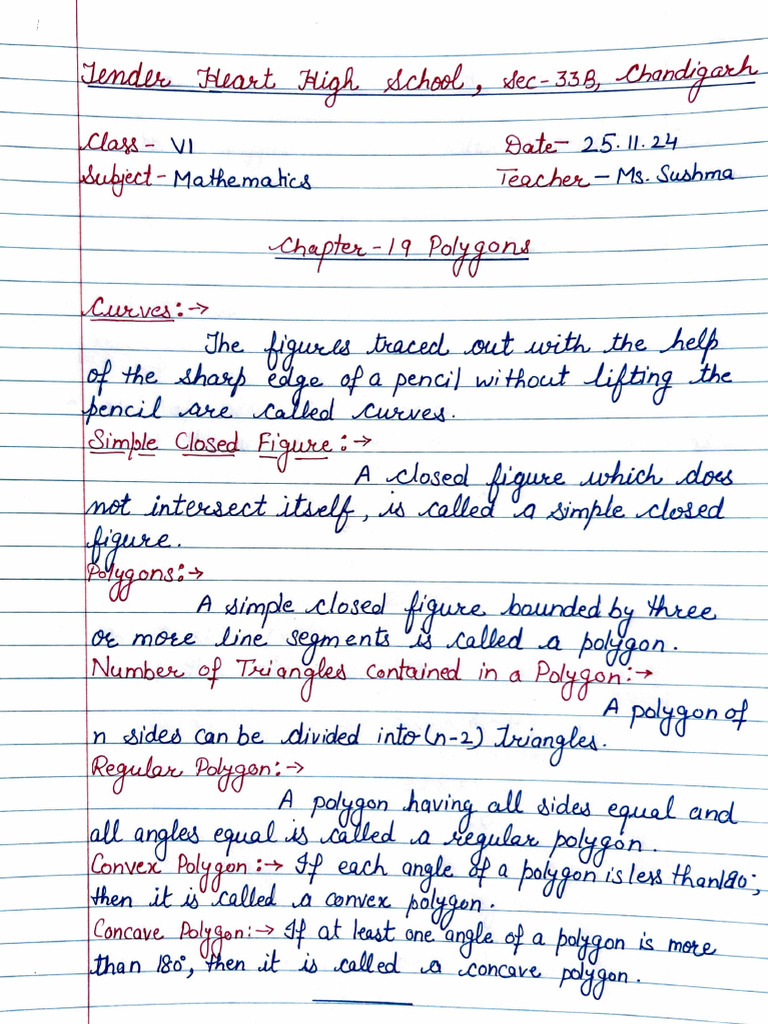 Tender Heart High School, Sec-33B, Chandigarh
Class- VI Date- 25.11.24
Subject- Mathematics Teacher- Ms. Sushma
Chapter-19 Polygons
Curves:→
The figures traced out with the help
of the sharp edge of a pencil without lifting the
pencil are called curves.
Simple Closed Figure:→
A closed figure which does
not intersect itself, is called a simple closed
figure.
Polygons:→
A simple closed figure bounded by three
or more line segments is called a polygon.
Number of Triangles contained in a Polygon:→
A polygon of
n sides can be divided into (n-2) triangles.
Regular Polygon:→
A polygon having all sides equal and
all angles equal is called a regular polygon.
Convex Polygon:→ If each angle of a polygon is less than 180°,
then it is called a convex polygon.
Concave Polygon:→ If at least one angle of a polygon is more
than 180°, then it is called a concave polygon.